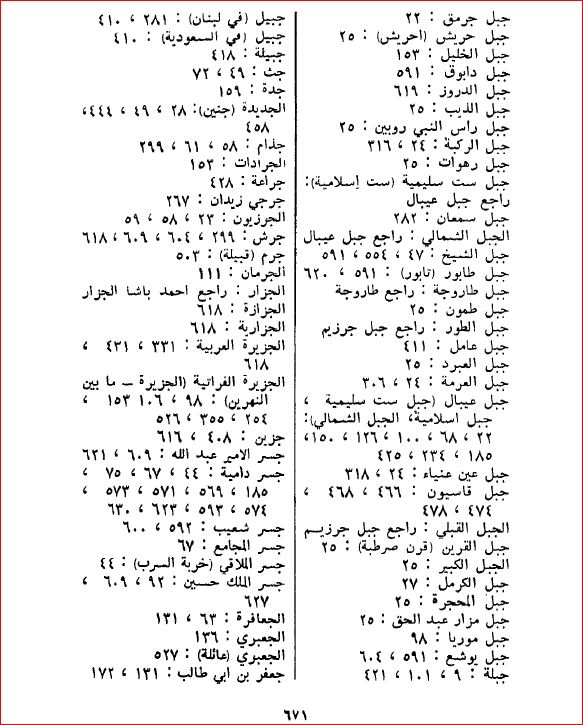 جبل جرمق : ٢٢
جبل حريش (احريش) : ٢٥
جبل الخليل : ١٥٣
جبل دابوق : ٥٩١
جبل الدروز : ٦١٩
جبل الذيب : ٢٥
جبل رأس النبي روبين : ٢٥
جبل الركبة : ٢٤ ، ٣١٦
جبل رهوات : ٢٥
جبل ست سليمية (ست إسلامية):
راجع جبل عيبال
جبل سمعان : ٢٨٢
الجبل الشمالي : راجع جبل عيبال
جبل الشيخ : ٤٧ ، ٥٥٤ ، ٥٩١
جبل طابور (تابور) : ٥٩١ ، ٦٢٠
جبل طاروجة : راجع طاروجة
جبل طمون : ٢٥
جبل الطور : راجع جبل جرزيم
جبل عامل : ٤١١
جبل العبرد : ٢٥
جبل العرمة : ٢٤ ، ٣٠٦
جبل عيبال (جبل ست سليمية ،
جبل اسلامية، الجبل الشمالي):
٢٢ ، ٦٨ ، ١٠٠ ، ١٢٦ ، ١٥٠،
١٨٥ ، ٢٣٤ ، ٤٢٥
جبل عين عنياء : ٢٤ ، ٣١٨
جبل قاسيون : ٤٦٦ ، ٤٦٨ ،
٤٧٤ ، ٤٧٨
الجبل القبلي : راجع جبل جرزيم
جبل القرين (قرن صرطبة) : ٢٥
الجبل الكبير : ٢٥
جبل الكرمل : ٢٧
جبل المحجرة : ٢٥
جبل مزار عبد الحق : ٢٥
جبل موريا : ٩٨
جبل يوشع : ٥٩١ ، ٦٠٤
جبلة : ٩ ، ١٠١ ، ٤٢١
جبيل (في لبنان) : ٢٨١ ، ٤١٠
جبيل (في السعودية) : ٤١٠
جبيلة : ٤١٨
جث : ٤٩ ، ٧٢
جدة : ١٥٩
الجديدة (جنين): ٢٨ ، ٤٩ ، ٤٤٤،
٤٥٨
جذام : ٥٨ ، ٦١ ، ٢٩٩
الجرادات : ١٥٣
جراعة : ٤٢٨
جرجي زيدان : ٢٦٧
الجرزيون : ٢٣ ، ٥٨ ، ٥٩
جرش : ٢٩٩ ، ٦٠٤ ، ٦٠٩ ، ٦١٨
جرم (قبيلة) : ٥٠٣
الجرمان : ١١١
الجزار : راجع احمد باشا الجزار
الجزازة : ٦١٨
الجزاربة : ٦١٨
الجزيرة العربية : ٣٣١ ، ٤٣١ ،
٦١٨
الجزيرة الفراتية (الجزيرة – ما بين
النهرين) : ٩٨ ، ١٠٦ ، ١٥٣ ،
٢٥٤ ، ٣٥٥ ، ٥٢٦
جزين : ٤٠٨ ، ٦١٦
جسر الامير عبد الله : ٦٠٩ ، ٦٢١
جسر دامية : ٤٤ ، ٦٧ ، ٧٥ ،
١٨٥ ، ٥٦٩ ، ٥٧١ ، ٥٧٣ ،
٥٧٤ ، ٥٩٣ ، ٦٢٣ ، ٦٣٠
جسر شعيب : ٥٩٢ ، ٦٠٠
جسر المجامع : ٦٧
جسر الملاقي (خربة السرب) : ٤٤
جسر الملك حسين : ٩٢ ، ٦٠٩ ،
٦٢٧
الجعافرة : ٦٣ ، ١٣١
الجعبري : ١٣٦
الجعبري (عائلة) : ٥٢٧
جعفر بن ابي طالب : ١٣١ ، ١٧٢
٦٧١